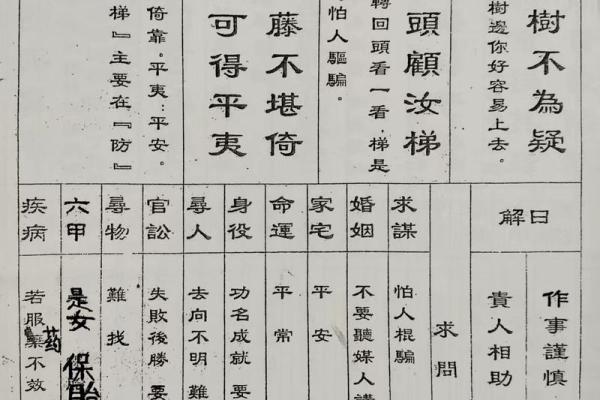 樹不為疑
樹邊你好容易上去。
頭顧汝梯
轉回頭看一看,梯是
怕人驅騙。
藤不堪倚
可得平夷
倚靠。平夷:平安。
梯』主要在『防』
日解
作事謹慎
貴人相助
求問
求謀
怕人棍騙
婚姻
不要聽媒人講
家宅
平安
命運
平常
身役
功名成就 要
尋人
去向不明 難
官訟
失敗後勝 要
尋物
難找
六甲
是女 保胎
疾病
若服藥不效
药